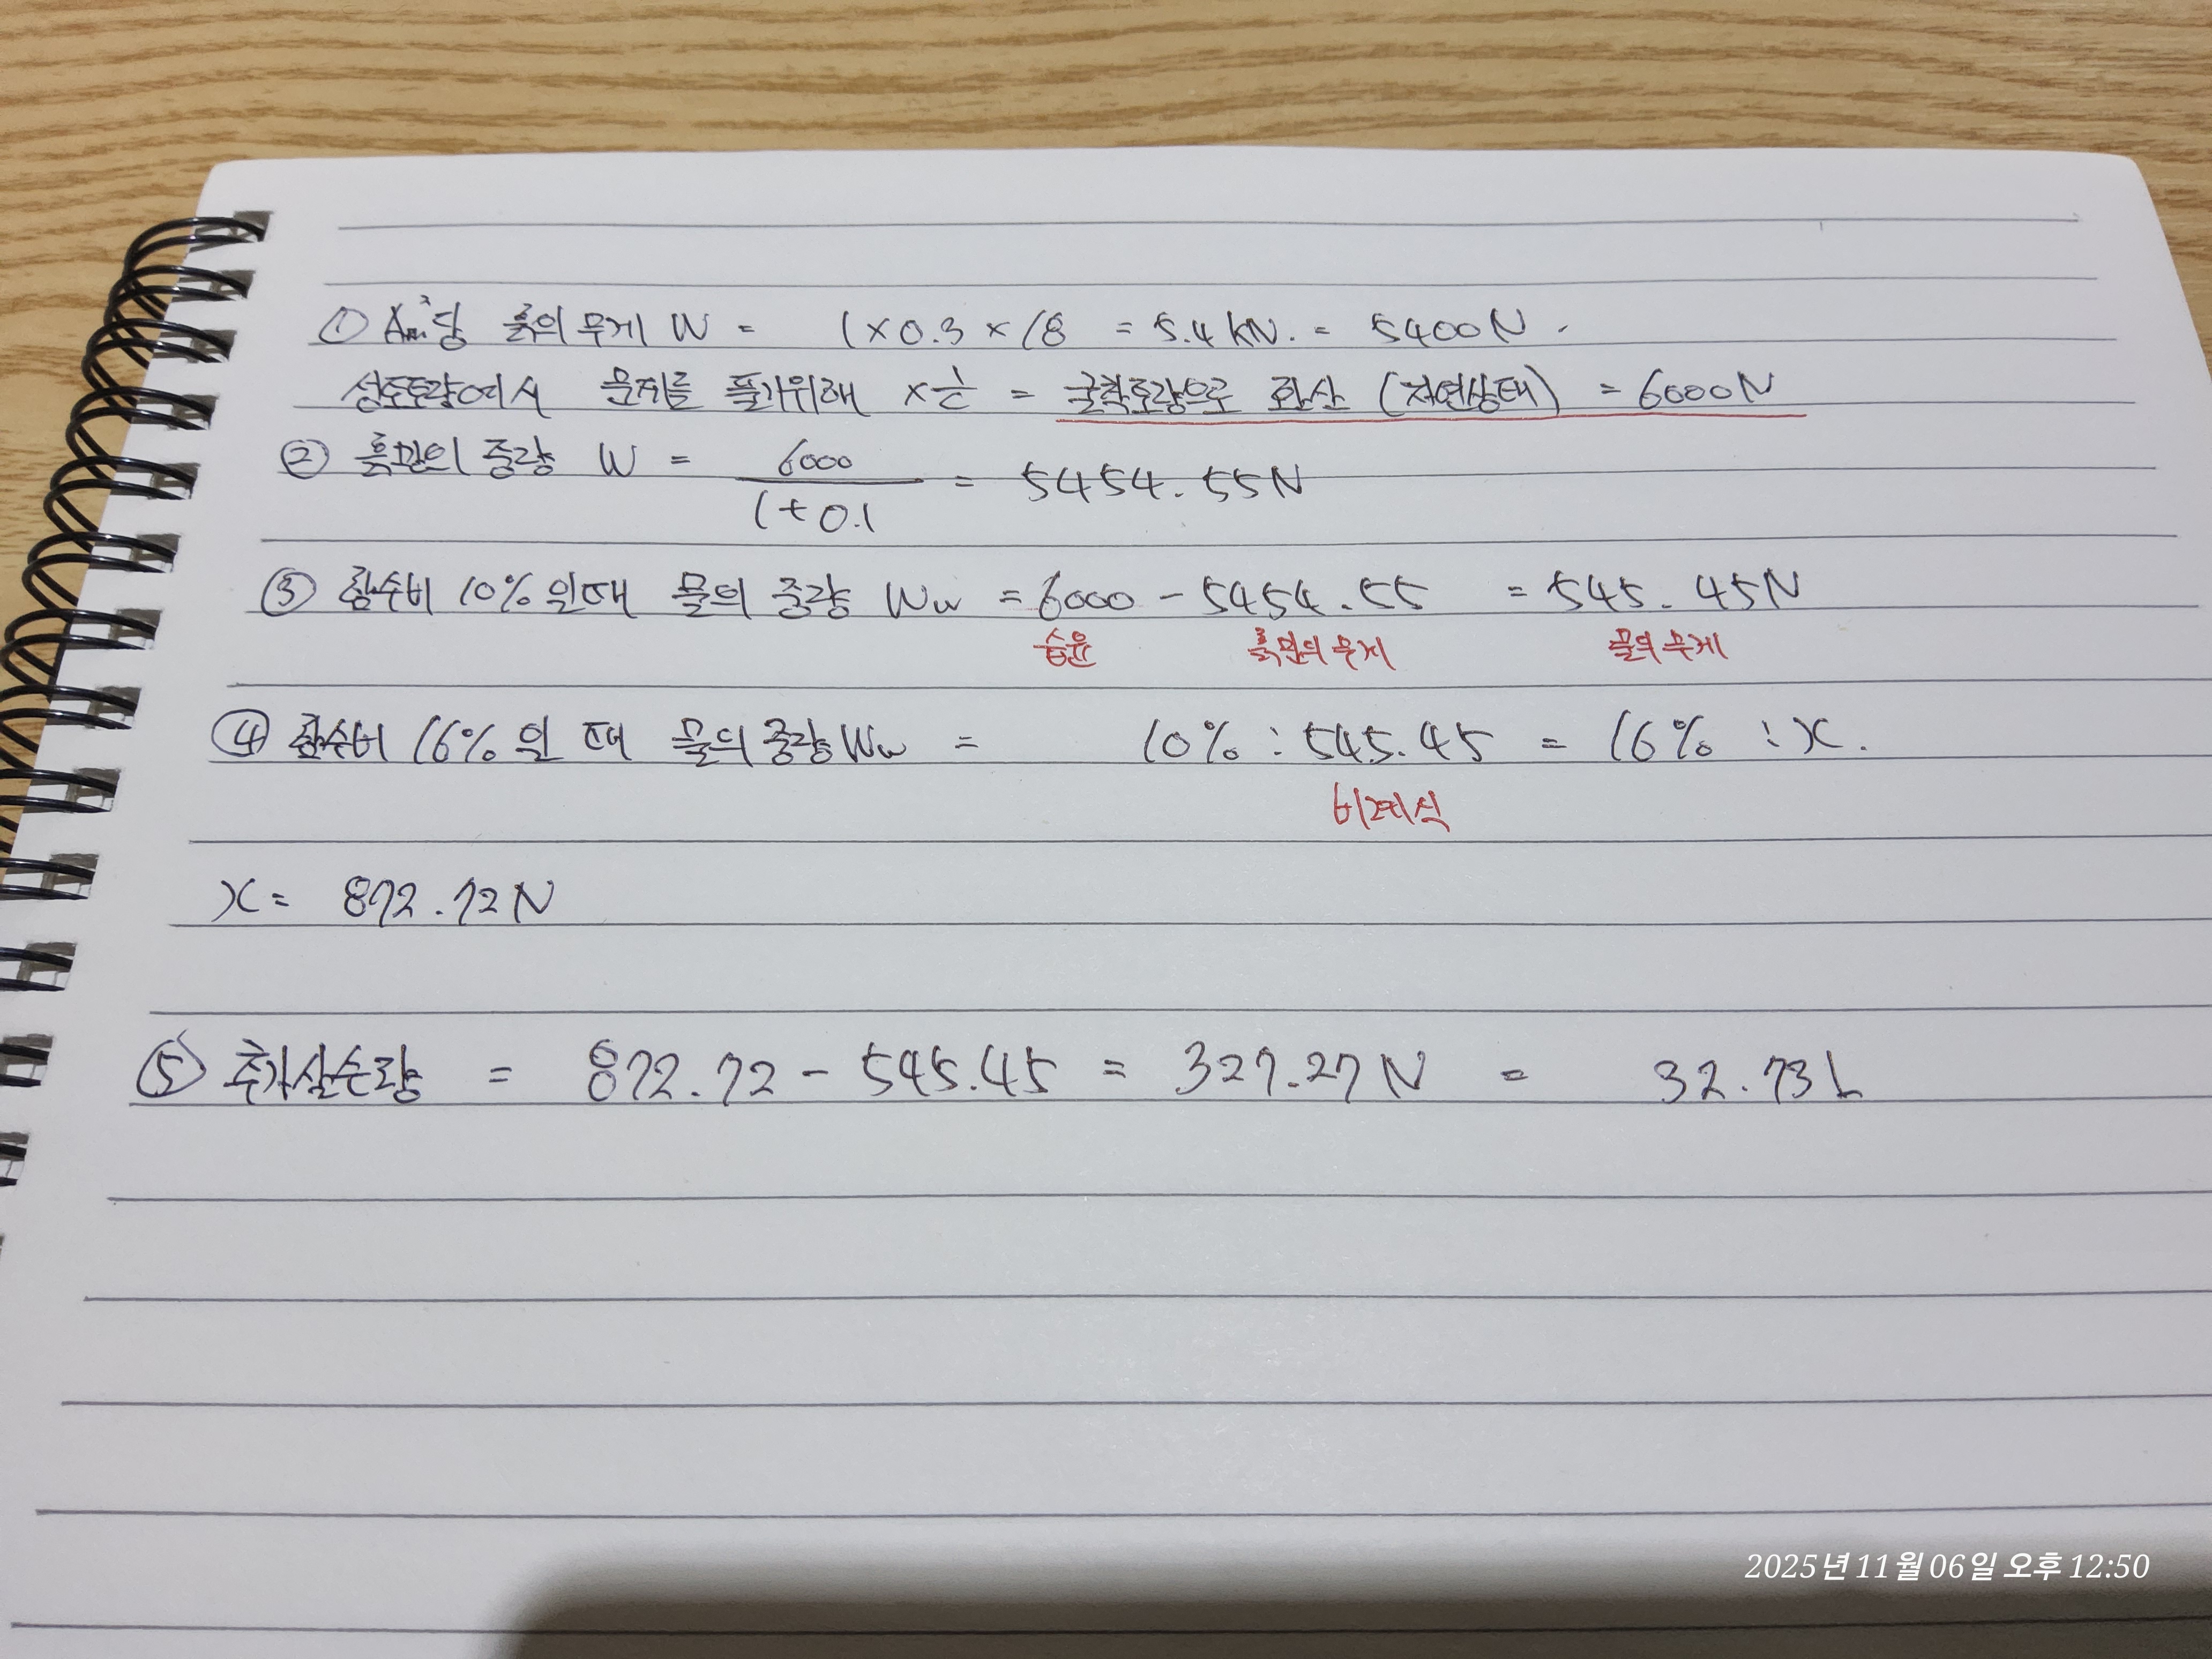 ① Am²당 흙의 무게 W = 1 × 0.3 × 18 = 5.4 kN. = 5400N.
성토토량에서 문제를 풀기위해 × 1/C = 굴착토량으로 환산 (자연상태) = 6000N
② 흙만의 중량 W = 6000 / (1+0.1) = 5454.55N
③ 함수비 10%일때 물의 중량 Ww = 6000 - 5454.55 = 545.45N
습윤 흙만의 무게 물의 무게
④ 함수비 16%일 때 물의 중량 Ww = 10% : 545.45 = 16% : x.
비례식
x = 872.72N
⑤ 추가살수량 = 872.72 - 545.45 = 327.27N = 32.73L
2025년 11월 06일 오후 12:50